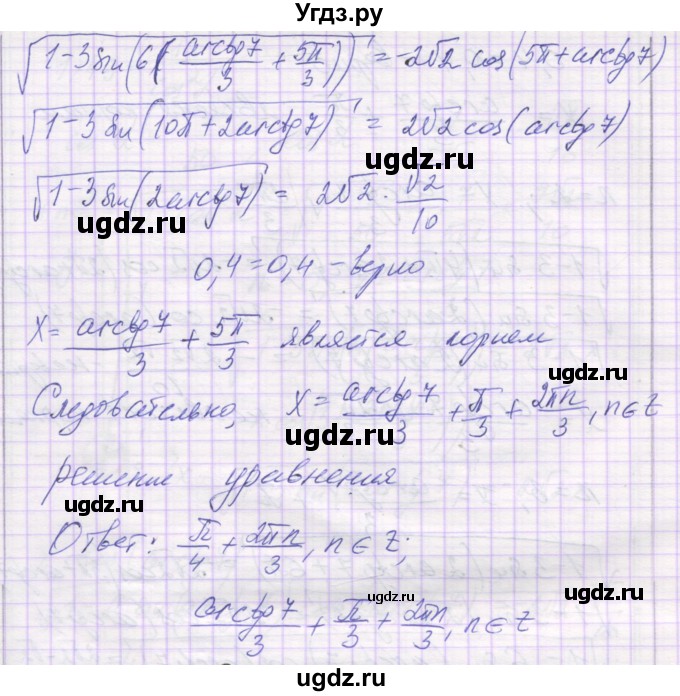 Угдз.ру
√(1-3sin(6(arctg7/3 + 5π/3))) = -2√2 cos(5π+arctg7)
√(1-3sin(10π+2arctg7)) = 2√2 cos(arctg7)
√(1-3sin(2arctg7)) = 2√2 · √2/10
ugdz.ru ugdz.ru
0,4=0,4 - верно
ugdz.ru
x = arctg7/3 + 5π/3 является корнем
ugdz.ru
Следовательно, x = arctg7/3 + π/3 + 2πn/3, n∈Z
ugdz.ru
решение уравнения
ugdz.ru
Ответ: π/4 + 2πn/3, n∈Z;
ugdz.ru ugdz.ru
arctg7/3 + π/3 + 2πn/3, n∈Z
ugdz.ru
ugdz.ru